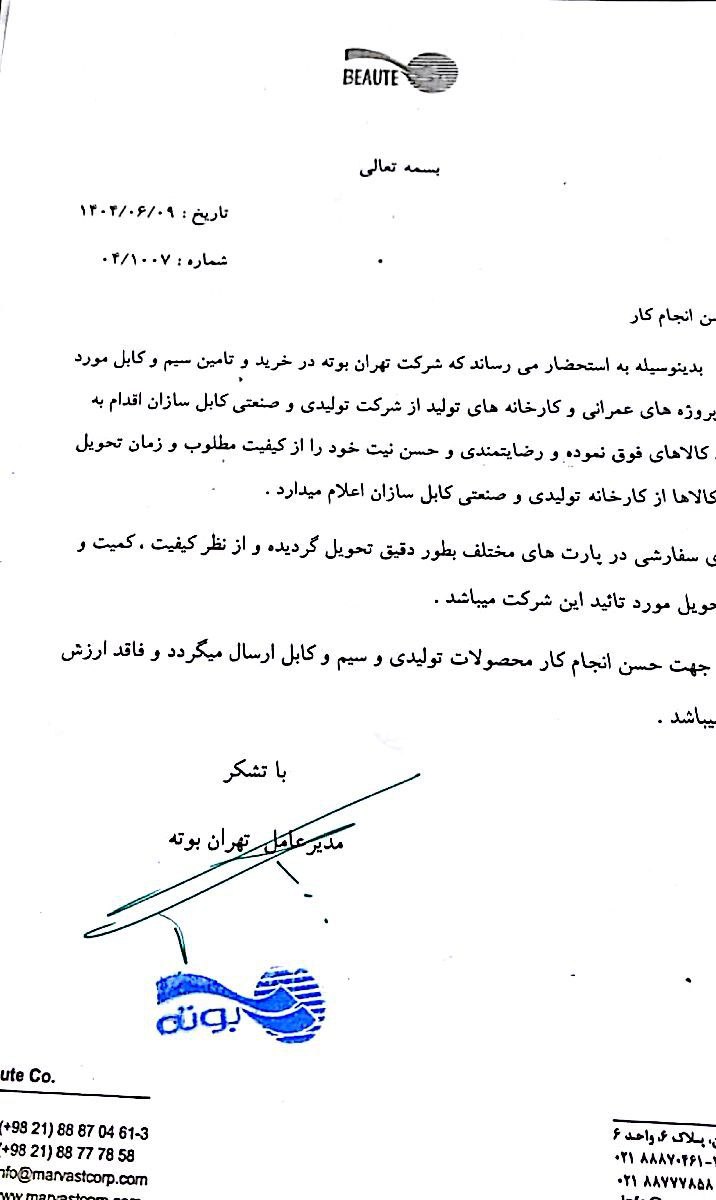 BEAUTE
بسمه تعالی
تاریخ : ۱۴۰۴/۰۶/۰۹
شماره : ۰۴/۱۰۰۷
انجام کار
بدینوسیله به استحضار می رساند که شرکت تهران بوته در خرید و تامین سیم و کابل مورد
پروژه های عمرانی و کارخانه های تولید از شرکت تولیدی و صنعتی کابل سازان اقدام به
کالاهای فوق نموده و رضایتمندی و حسن نیت خود را از کیفیت مطلوب و زمان تحویل
کالاها از کارخانه تولیدی و صنعتی کابل سازان اعلام میدارد .
سفارشی در پارت های مختلف بطور دقیق تحویل گردیده و از نظر کیفیت ، کمیت و
مورد تائید این شرکت میباشد .
جهت حسن انجام کار محصولات تولیدی و سیم و کابل ارسال میگردد و فاقد ارزش
میباشد .
با تشکر
مدیرعامل تهران بوته
بوته
ute Co.
(+98 21) 88 87 04 61-3
(+98 21) 88 77 78 58
nfo@marvastcorp.com
www.marvastcorp.com
پلاک ۶، واحد ۶
۰۲۱ ۸۸۸۷۰۴۶۱-
۰۲۱ ۸۸۷۷۷۸۵۸